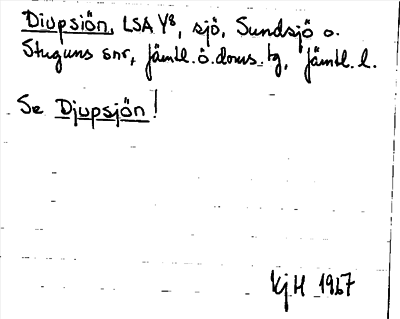 Diupsiön, LSA Y8, sjö, Sundsjö o.
Stuguns snr, Jämtl. ö. doms. tg, Jämtl. l.
Se Djupsjön!
KjH 1967